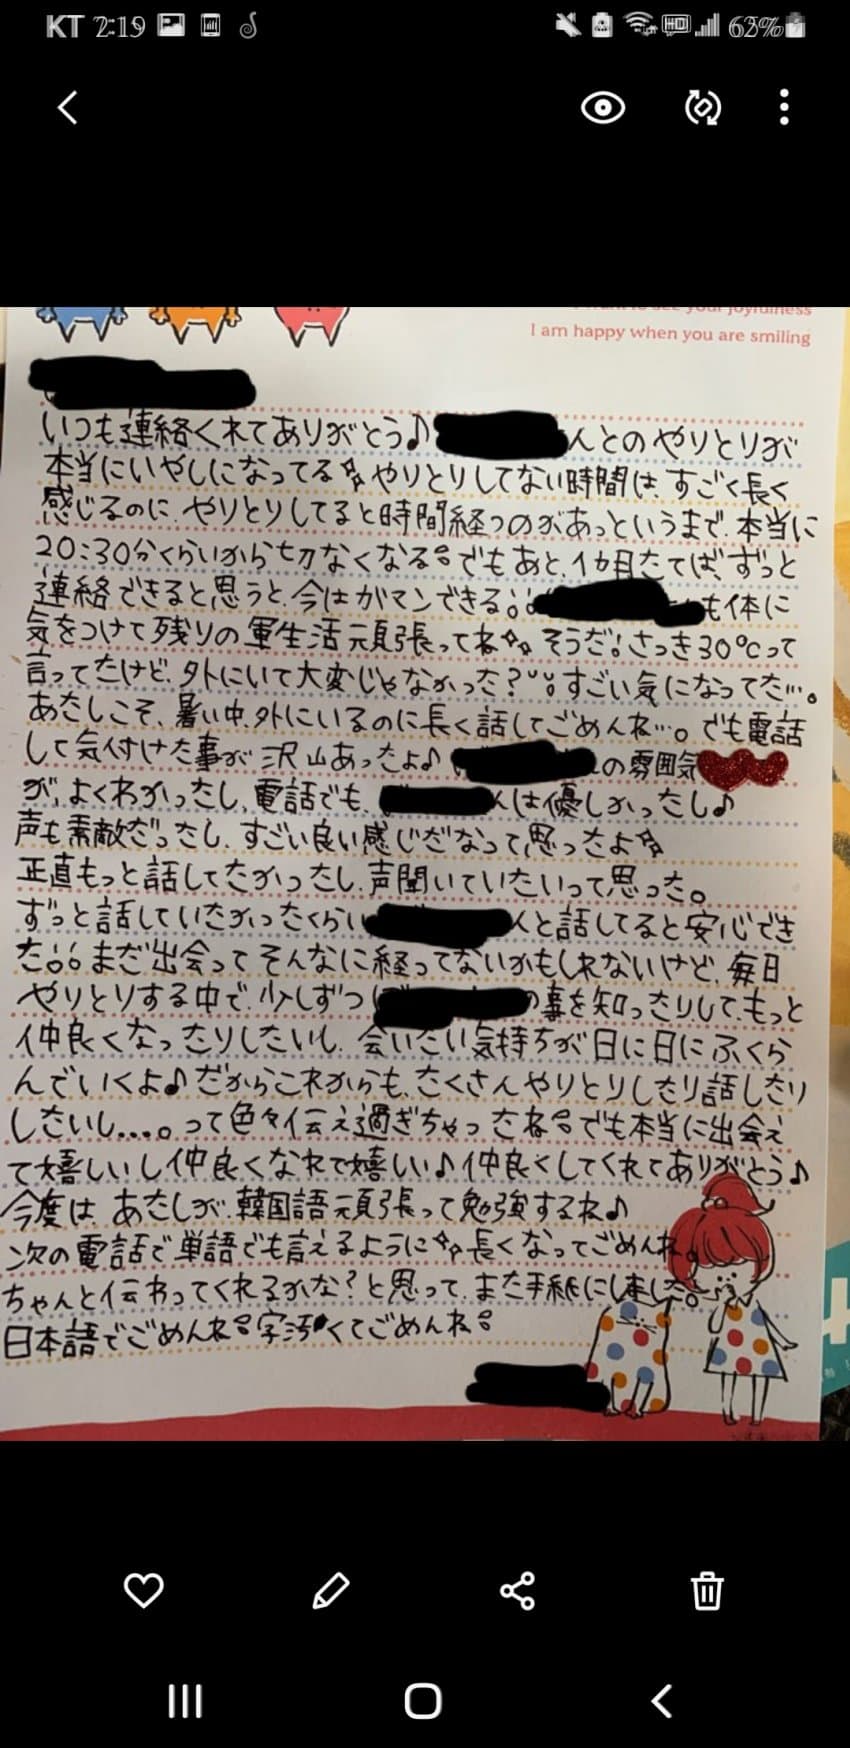 KT 2:19
63%
I am happy when you are smiling
いつも連絡くれてありがとう♪
んとのやりとりが
本当にいやしになってる やりとりしてない時間は、すごく長く
感じるのに、やりとりしてると時間経つのがあっというまで、本当に
20:30分くらいから切なくなる。でもあと、1カ月たてば、ずっと
連絡できると思うと、今はガマンできる
も体に
気をつけて残りの軍生活頑張ってね そうだ!さっき30℃って
言ってたけど、外にいて大変じゃなかった?すごい気になってた…。
あたしこそ、暑い中、外にいるのに長く話してごめんね…。でも電話
して気付けた事が沢山あったよ♪
の雰囲気
が、よくわかったし、電話でも、
んは優しかったし♪
声も素敵だったし、すごい良い感じだなって思ったよ
正直もっと話してたかったし、声聞いていたいって思った。
ずっと話していたかったくらい
んと話してると安心でき
た まだ出会ってそんなに経ってないかもしれないけど、毎日
やりとりする中で、少しずつ
の事を知ったりして、もっと
仲良くなったりしたいし、会いたい気持ちが日に日にふくら
んでいくよ♪だからこれからも、たくさんやりとりしたり話したり
したいし…。って色々伝え過ぎちゃったね でも本当に出会え
て嬉しいし仲良くなれて嬉しい♪仲良くしてくれてありがとう♪
今度は、あたしが、韓国語頑張って勉強するね♪
次の電話で単語でも言えるように 長くなってごめんね。
ちゃんと伝わってくれるかな?と思って、また手紙にしました。
日本語でごめんね 字汚くてごめんね